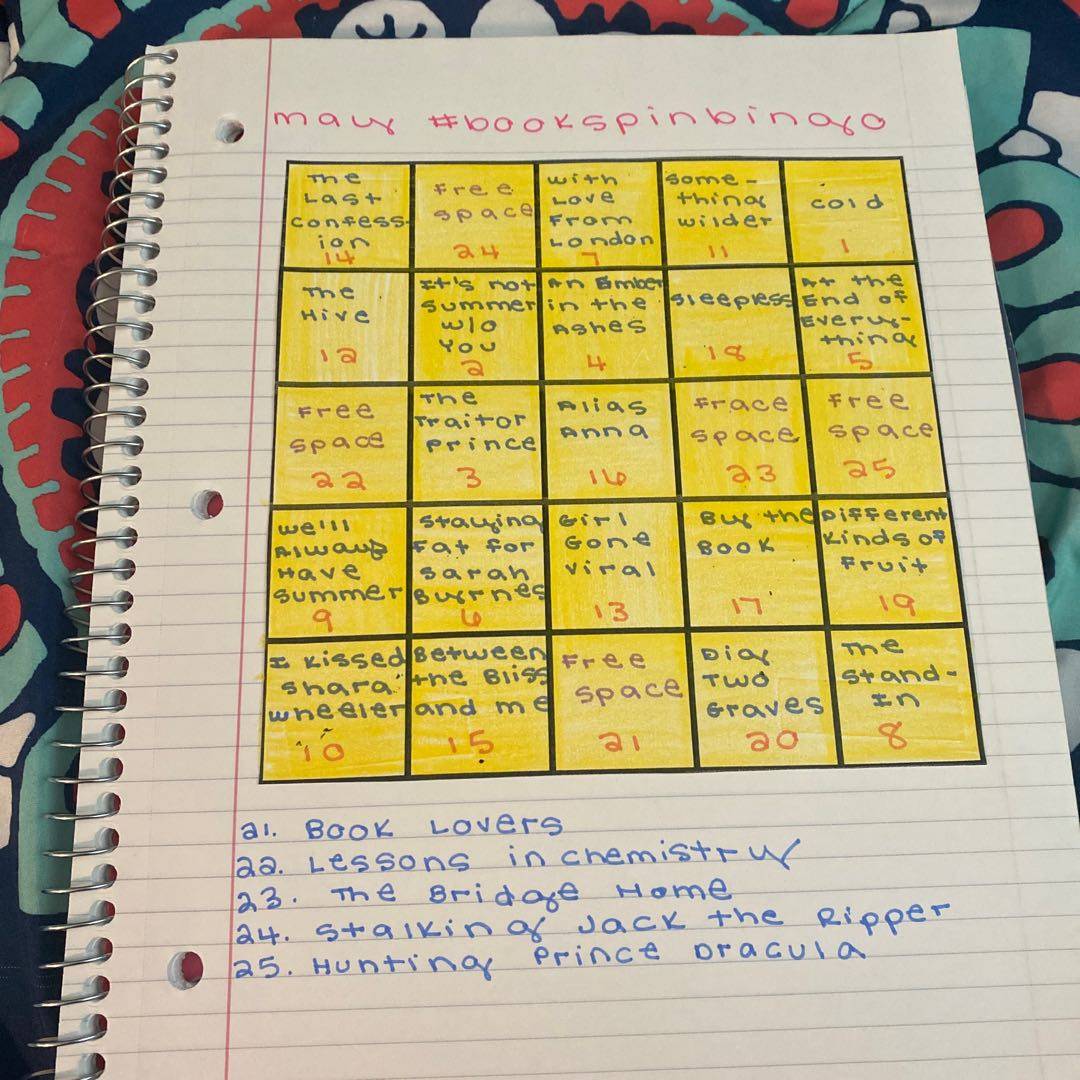 may #bookspinbingo
The
Last
Confess-
ion
14
Free
space
24
With
Love
From
London
7
Some-
thing
wilder
11
Cold
1
The
Hive
12
It's not
summer
w/o
You
2
An Ember
in the
Ashes
4
Sleepless
18
At the
End of
Every-
thing
5
Free
space
22
The
Traitor
Prince
3
Alias
Anna
16
Frace
space
23
Free
space
25
We'll
Always
Have
Summer
9
Staying
Fat for
Sarah
Byrnes
6
Girl
Gone
Viral
13
By the
Book
17
Different
Kinds of
Fruit
19
I Kissed
Shara
Wheeler
10
Between
the Bliss
and me
15
Free
space
21
Dig
Two
Graves
20
The
Stand-
In
8
21. Book Lovers
22. Lessons in Chemistry
23. The Bridge Home
24. Stalking Jack the Ripper
25. Hunting Prince Dracula